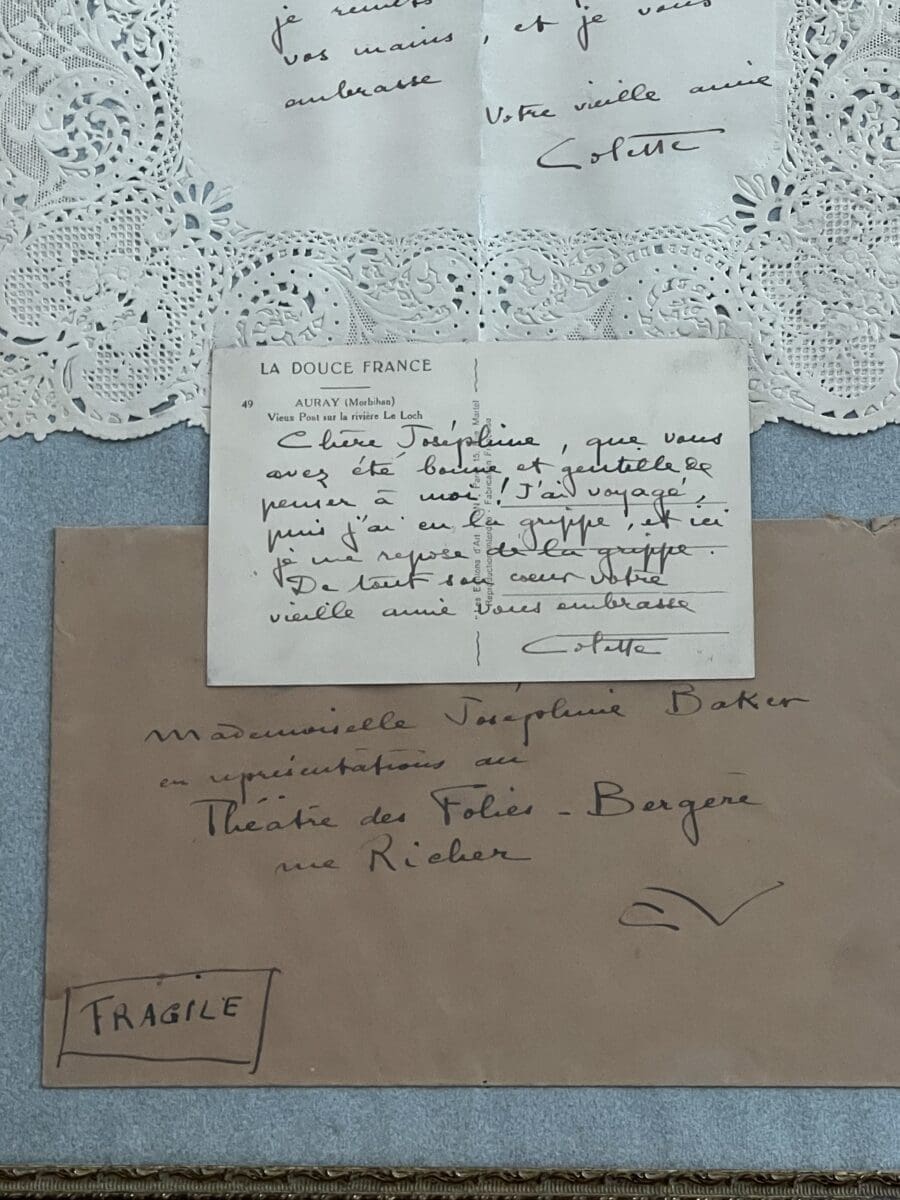 je remets
vos mains, et je vous
embrasse
Votre vieille amie
Colette
LA DOUCE FRANCE
49 AURAY (Morbihan)
Vieux Pont sur la rivière Le Loch
Chère Joséphine, que vous
avez été bonne et gentille de
penser à moi ! J'ai voyagé,
puis j'ai eu la grippe, et ici
je me repose de la grippe.
De tout son coeur votre
vieille amie vous embrasse
Colette
Les Editions d'Art
Reproduction
Mademoiselle Joséphine Baker
en représentations au
Théâtre des Folies-Bergère
rue Richer
EV
FRAGILE